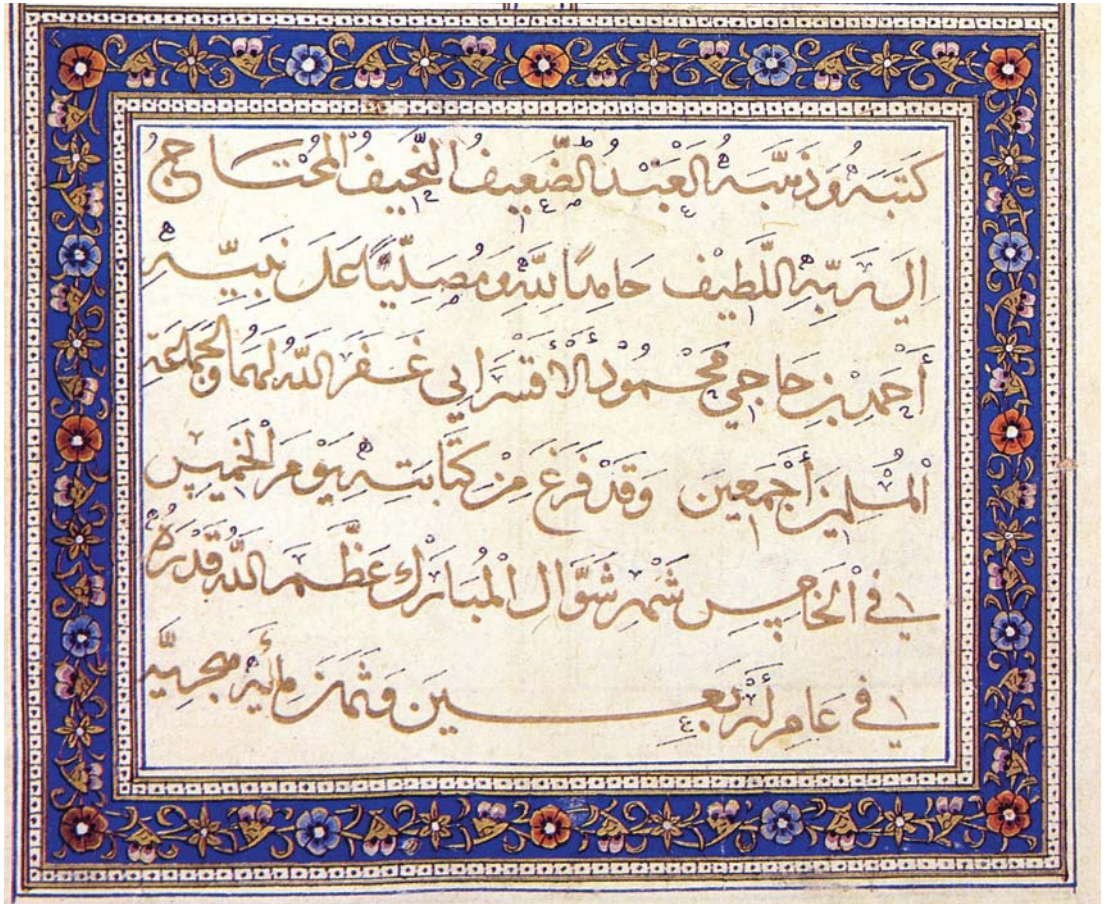 كَتَبَهُ وَذَهَّبَهُ الْعَبْدُ الضَّعِيفُ النَّحِيفُ الْمُحْتَاجُ
اِلَى رَبِّهِ اللَّطِيفِ حَامِدًا لِلَّهِ وَمُصَلِّيًا عَلَى نَبِيِّهِ
أَحْمَدْ بِنْ حَاجِي مَحْمُودْ الْأَقْسَرَايِي غَفَرَ اللَّهُ لَهُمَا وَلِجَمَاعَةِ
الْمُسْلِمِينَ أَجْمَعِينَ وَقَدْ فَرَغَ مِنْ كِتَابَتِهِ يَوْمَ الْخَمِيسِ
فِي الْخَامِسِ شَهْرِ شَوَّالِ الْمُبَارَكِ عَظَّمَ اللَّهُ قَدْرَهُ
فِي عَامِ أَرْبَعِينَ وَثَمَنِ مِائَةٍ هِجْرِيَّةٍ